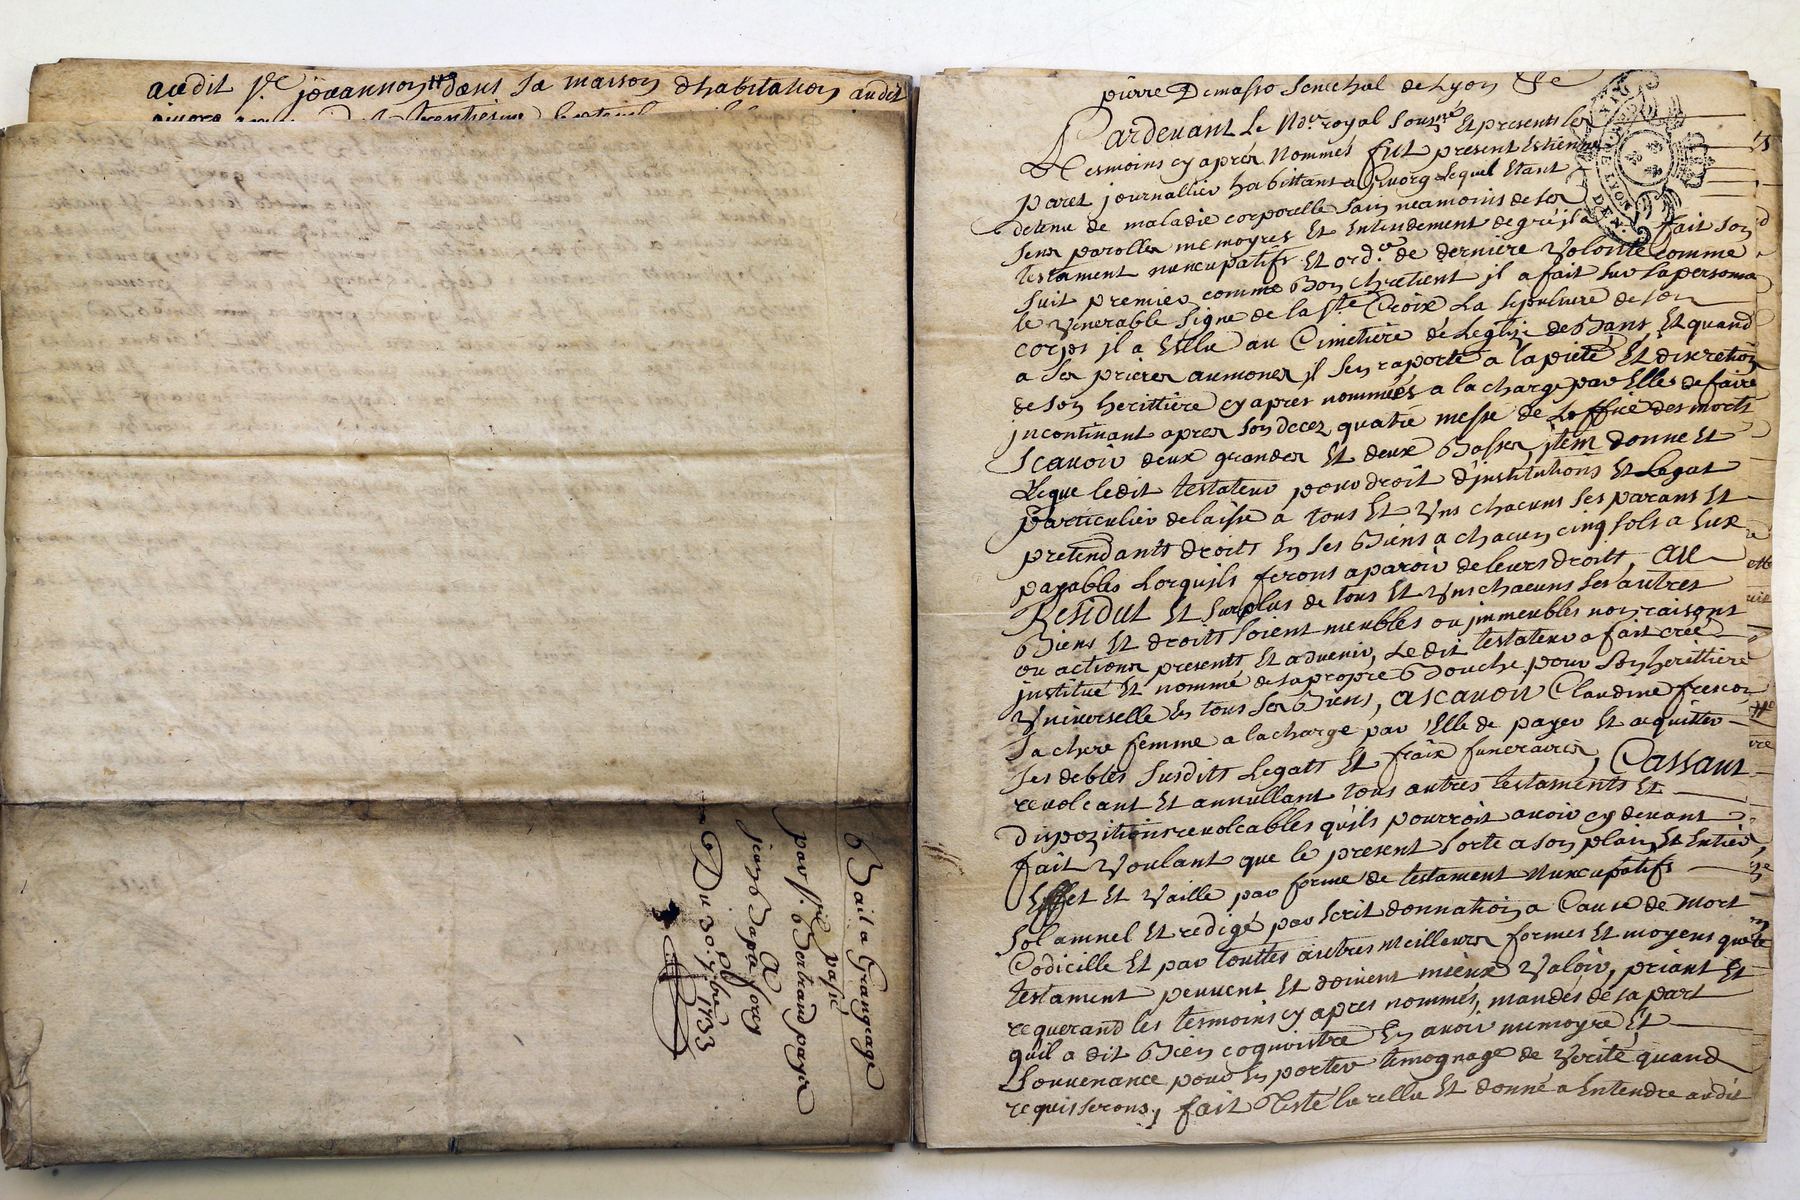 audit Sr. jouannon dans sa maison dhabitation audit
Bail a Grangeage
passé
par Sr. Bertrand payen
A
jean Bapte forey
Du 30e 7bre 1733
pierre Demasso Senechal de Lyon
Pardevant Le Nore. royal Sousné Et presents les
Tesmoins cy aprés Nommés fut present Estienne
paret journallier habittant a givorg Lequel Etant
detenu de maladie corporelle Sain neamoins de ses
sens parolles memoyres Et Entendement de gré il a fait son
testament nuncupatifs Et ordre. de derniere Volonté comme
suit premier comme Bon chretient jl a fait sur sa persone
le Venerable Signe de la Ste Croix La sepulture de son
corps jl a Eslu au Cimetiere de Leglize de Bans Et quand
a ses prieres aumones jl s'en raporte a la pieté Et discretion
de son herittiere cy apres nommées a la charge par Elles de faire
jncontinant apres son decez quatre messe de Loffice des morts
Scavoir deux grandes Et deux Basses, jtem donne Et
Legue ledit testateur pour droit d'institutions Et Legat
particulier delaisse a tous Et Uns chacuns ses parans Et
pretendants droits En ses Biens a chacun cinq sols a Eux
payables Lorquils feront aparoir de leurs droits, au
Residut Et surplus de tous Et Uns chacuns ses autres
Biens Et droits soient meubles ou jmmeubles nons raisons
ou actions presents Et advenir, Ledit testateur a fait créé
jnstitué Et nommé de sa propre Bouche pour son herittiere
Universelle En tous ses Biens, ascavoir Claudine frescon
sa chere femme a la charge par Elle de payer Et aquitter
ses debtes susdits Legats Et fraix funeraires, Cassant
revolcant Et annullant tous autres testaments Et
dispozitions revolcables qu'ils pourroit avoir cy devant
fait Voulant que le present sorte a son plain Et Entier
Effet Et Vaille par forme de testament Nuncupatifs
solamnel Et redigé par Ecrit donnation a Cause de mort
Codicille Et par touttes autres meilleurs formes Et moyens que
testament peuvent Et doivent mieux Valoir, priant Et
requerand les tesmoins cy apres nommés, mandés de sa part
qu'il a dit Bien cognoistre En avoir memoyre Et
Souvenance pour En porter temognage de Verité quand
requis serons, fait Testé lu rellu Et donné a Entendre audit